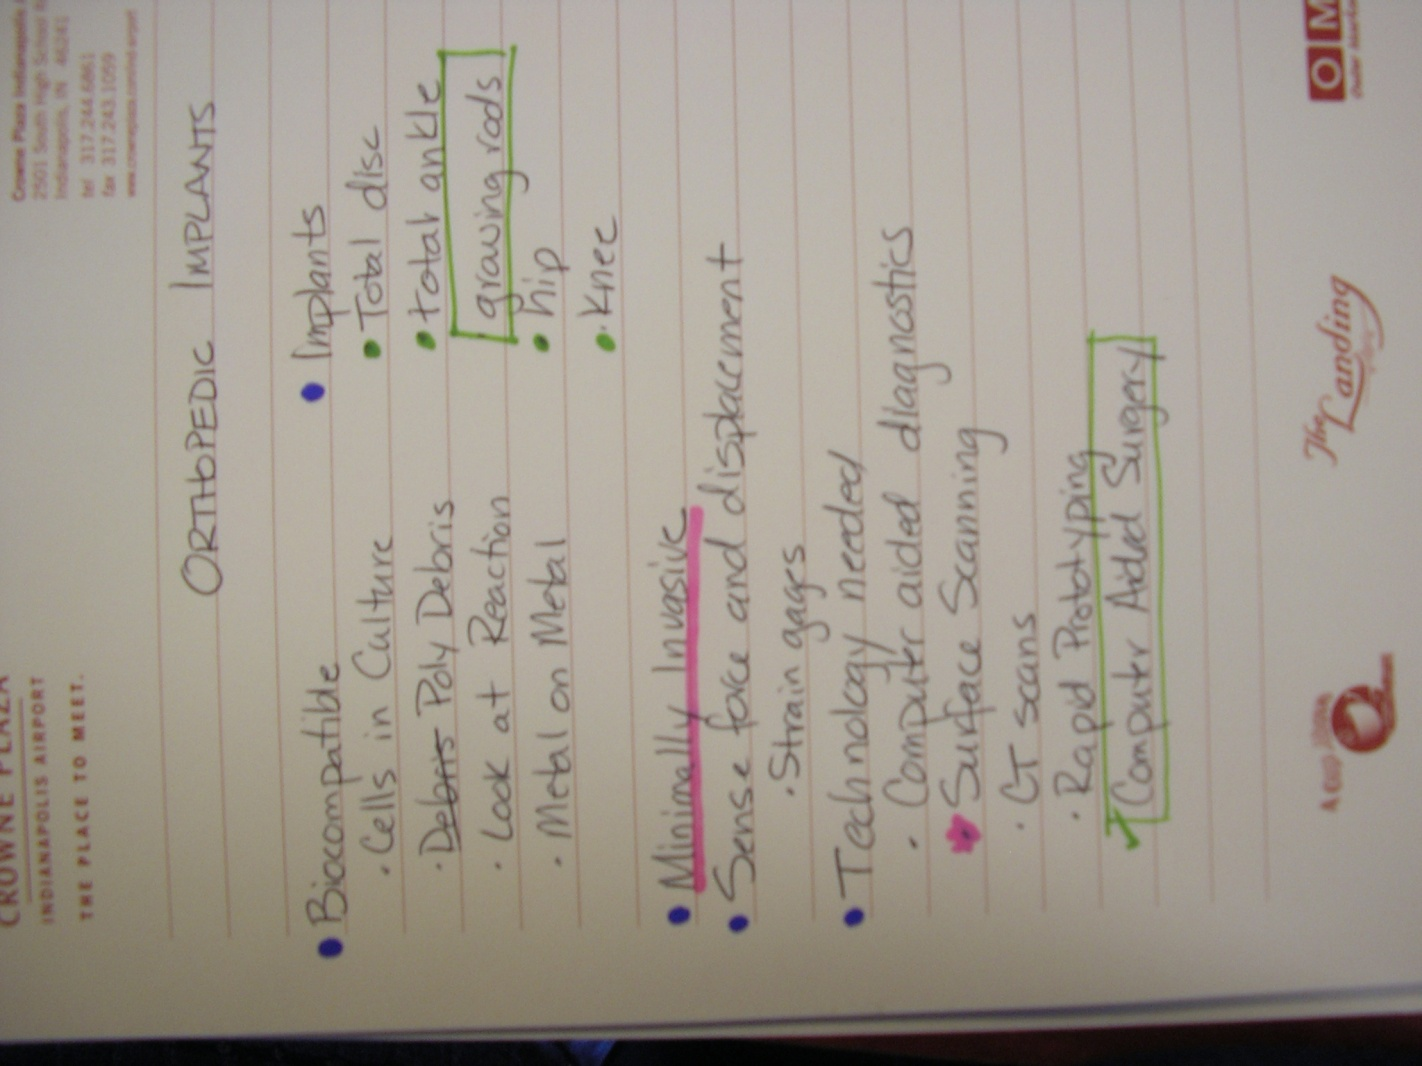 CROWNE PLAZA
INDIANAPOLIS AIRPORT
THE PLACE TO MEET.
Crowne Plaza Indianapolis
2501 South High School
Indianapolis, IN 46241
tel 317.244.6861
fax 317.243.1059
ORTHOPEDIC IMPLANTS
Biocompatible
· Cells in Culture
· Debris Poly Debris
· Look at Reaction
· Metal on Metal
Implants
Total disc
total ankle
growing rods
hip
· Knee
Minimally Invasive
Sense force and displacement
· Strain gages
Technology needed
· Computer aided diagnostics
Surface Scanning
· CT scans
· Rapid Prototyping
Computer Aided Surgery
The Landing
OM